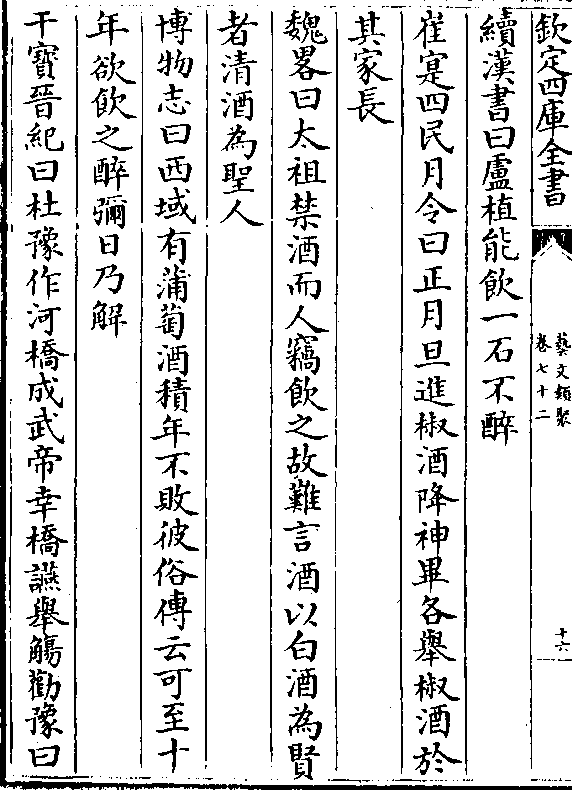 欽定四庫全書
藝文類聚
卷七十二
十六
續漢書曰盧植能飲一石不醉
崔寔四民月令曰正月旦進椒酒降神畢各舉椒酒於
其家長
魏畧曰太祖禁酒而人竊飲之故難言酒以白酒為賢
者清酒為聖人
博物志曰西域有蒲萄酒積年不敗彼俗傳云可至十
年欲飲之醉彌日乃解
干寶晉紀曰杜豫作河橋成武帝幸橋讌舉觴勸豫曰